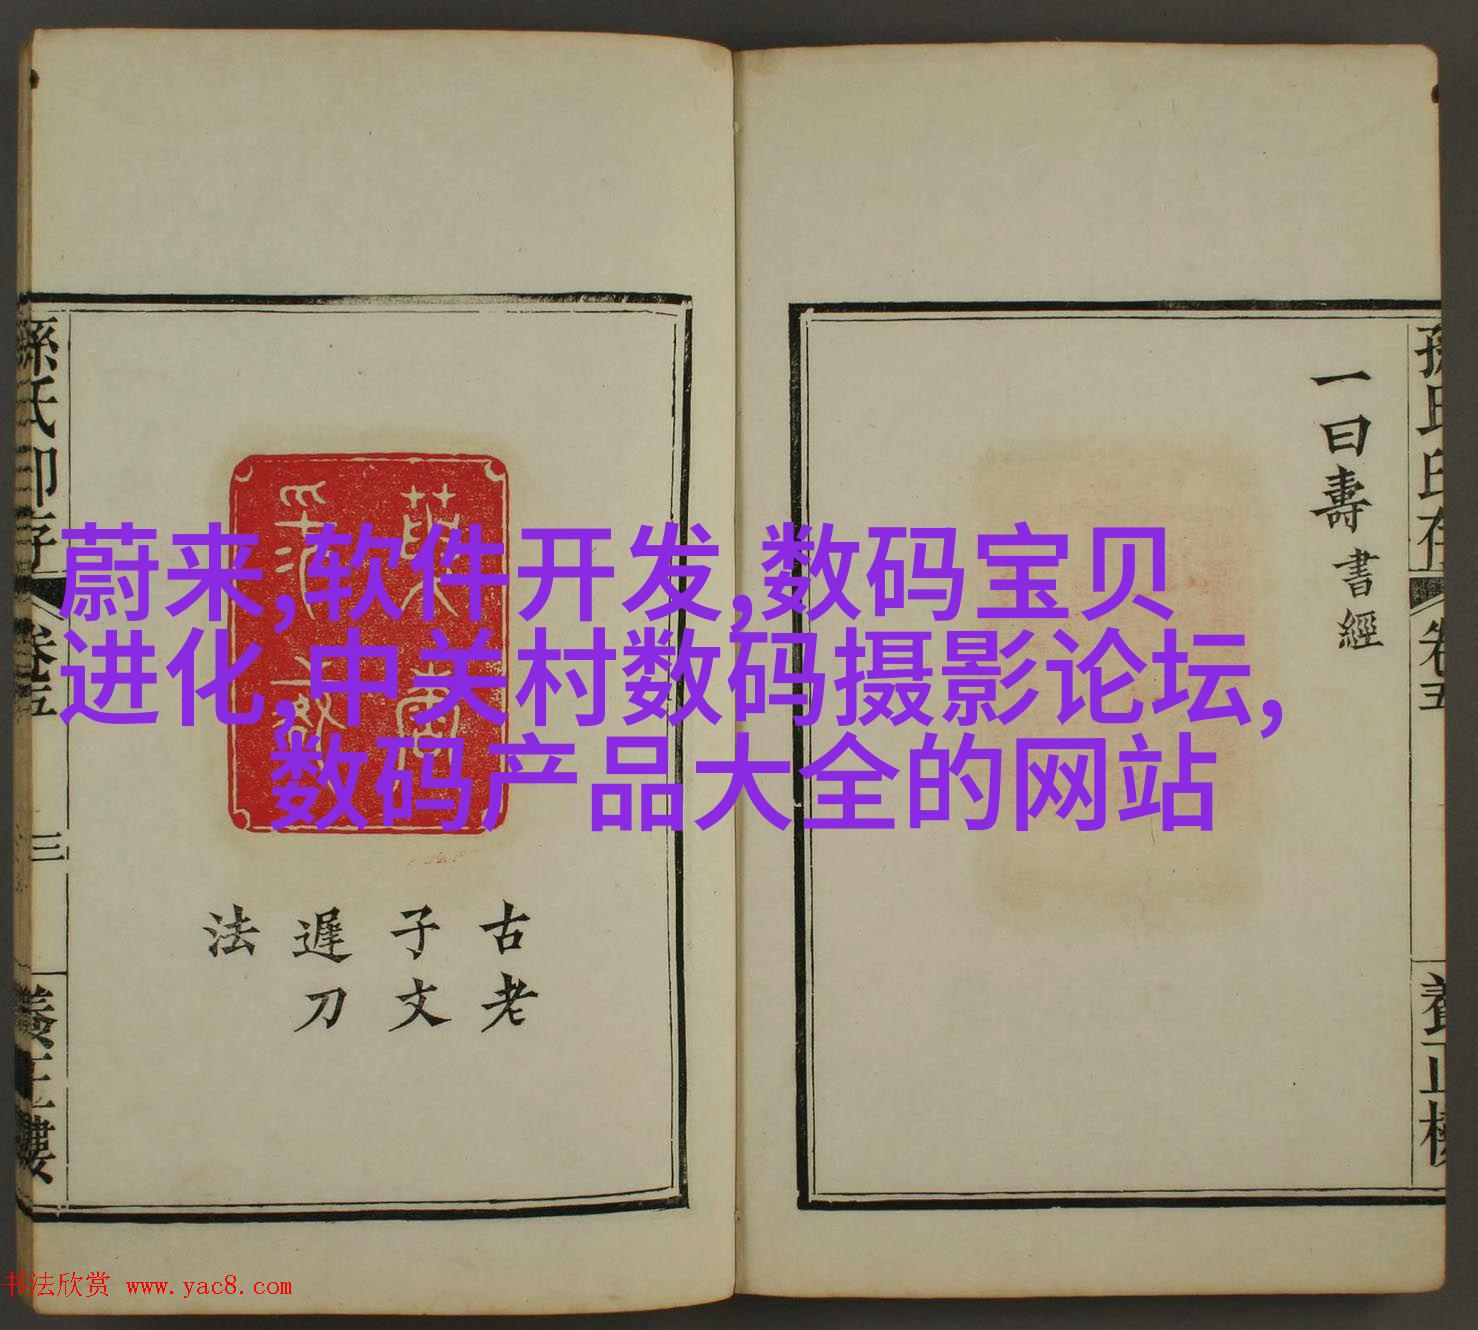 蔚来,软件开发,数码宝贝
进化,中关村数码摄影论坛,
数码产品大全的网站
一曰壽書經
孫氏印存
卷五
養正樓
古老
子文
遲刀
法
孫氏印存
卷五
三
養正樓
书法欣赏 www.yac8.com